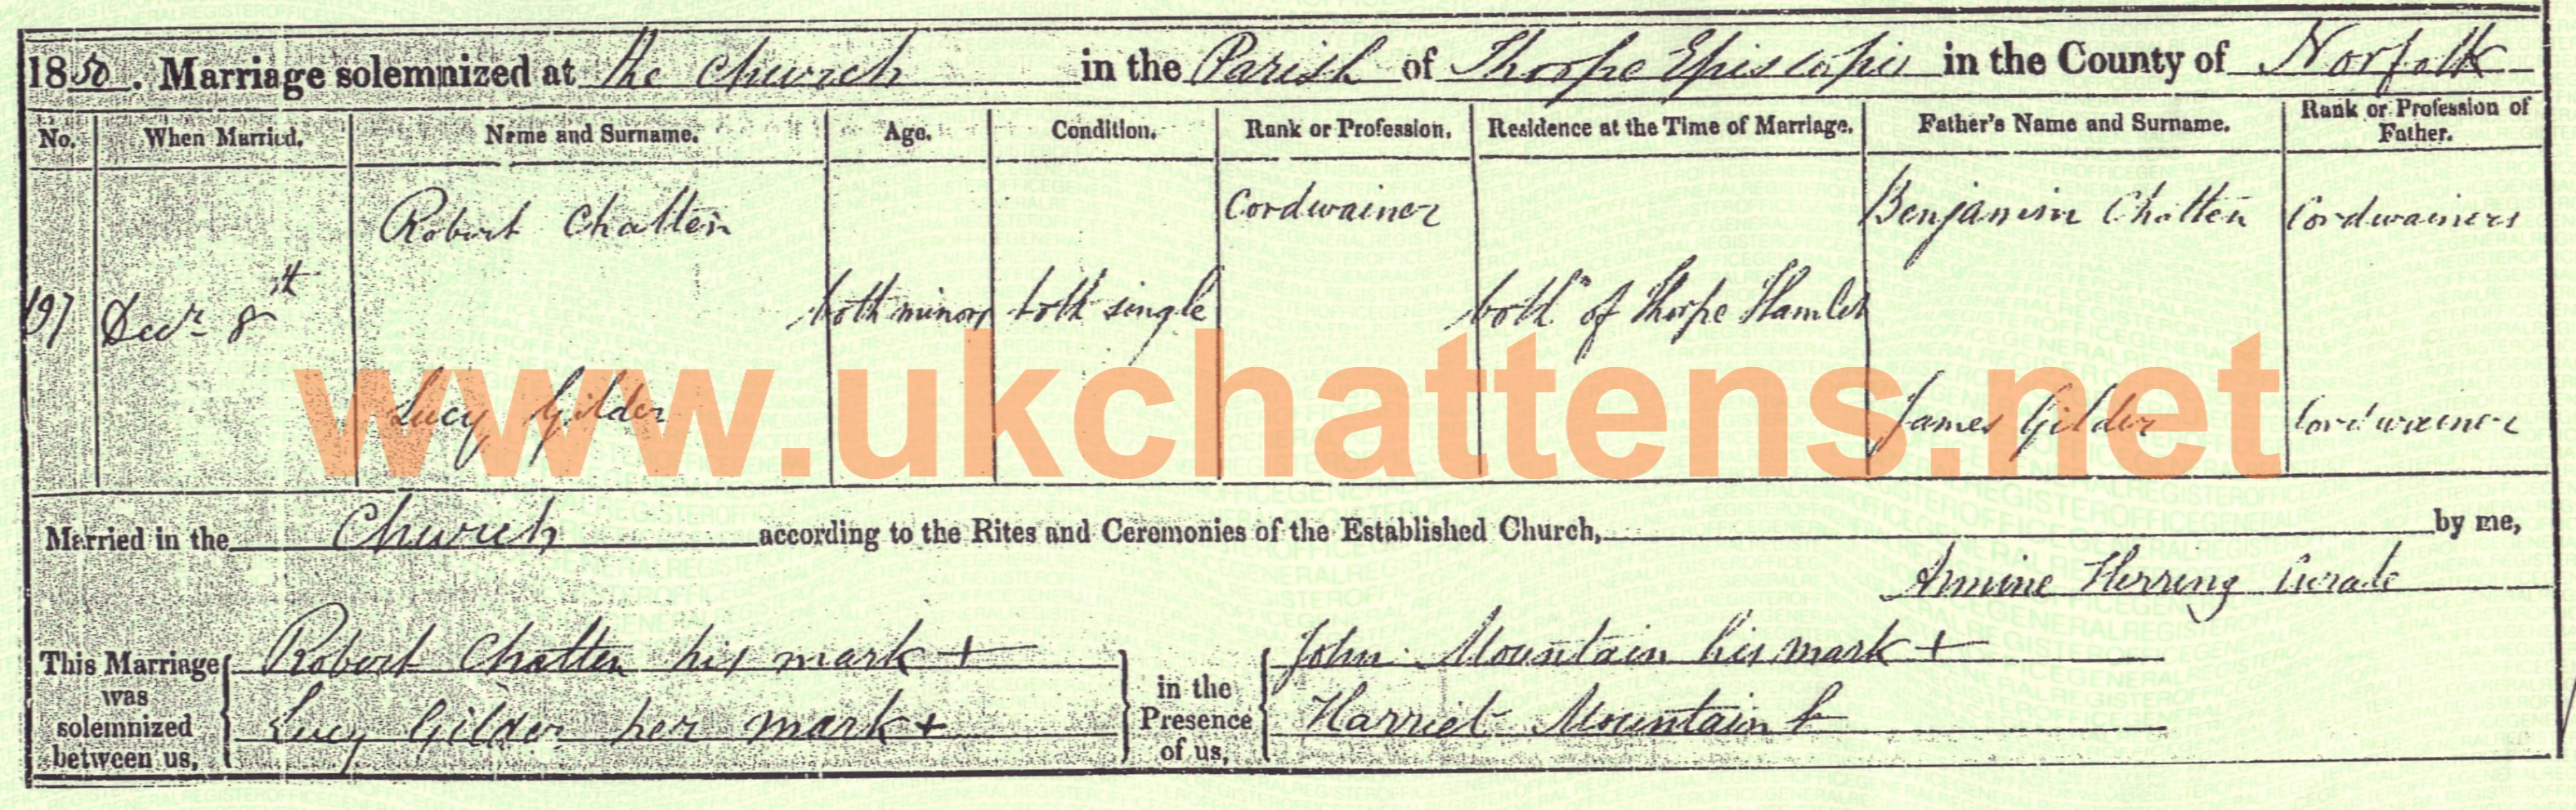 1850. Marriage solemnized at the Church in the Parish of Thorpe Episcopi in the County of Norfolk
No. When Married. Name and Surname. Age. Condition. Rank or Profession. Residence at the Time of Marriage. Father's Name and Surname. Rank or Profession of Father.
Robert Chatten Cordwainer Benjamin Chatten Cordwainers
197 Decr 8th both minors both single both of Thorpe Hamlet
Lucy Gilder James Gilder Cordwainer
www.ukchattens.net
Married in the Church according to the Rites and Ceremonies of the Established Church, by me,
Herring Curate
This Marriage was solemnized between us, Robert Chatten his mark + in the Presence of us, John Mountain his mark +
Lucy Gilder her mark + Harriet Mountain +